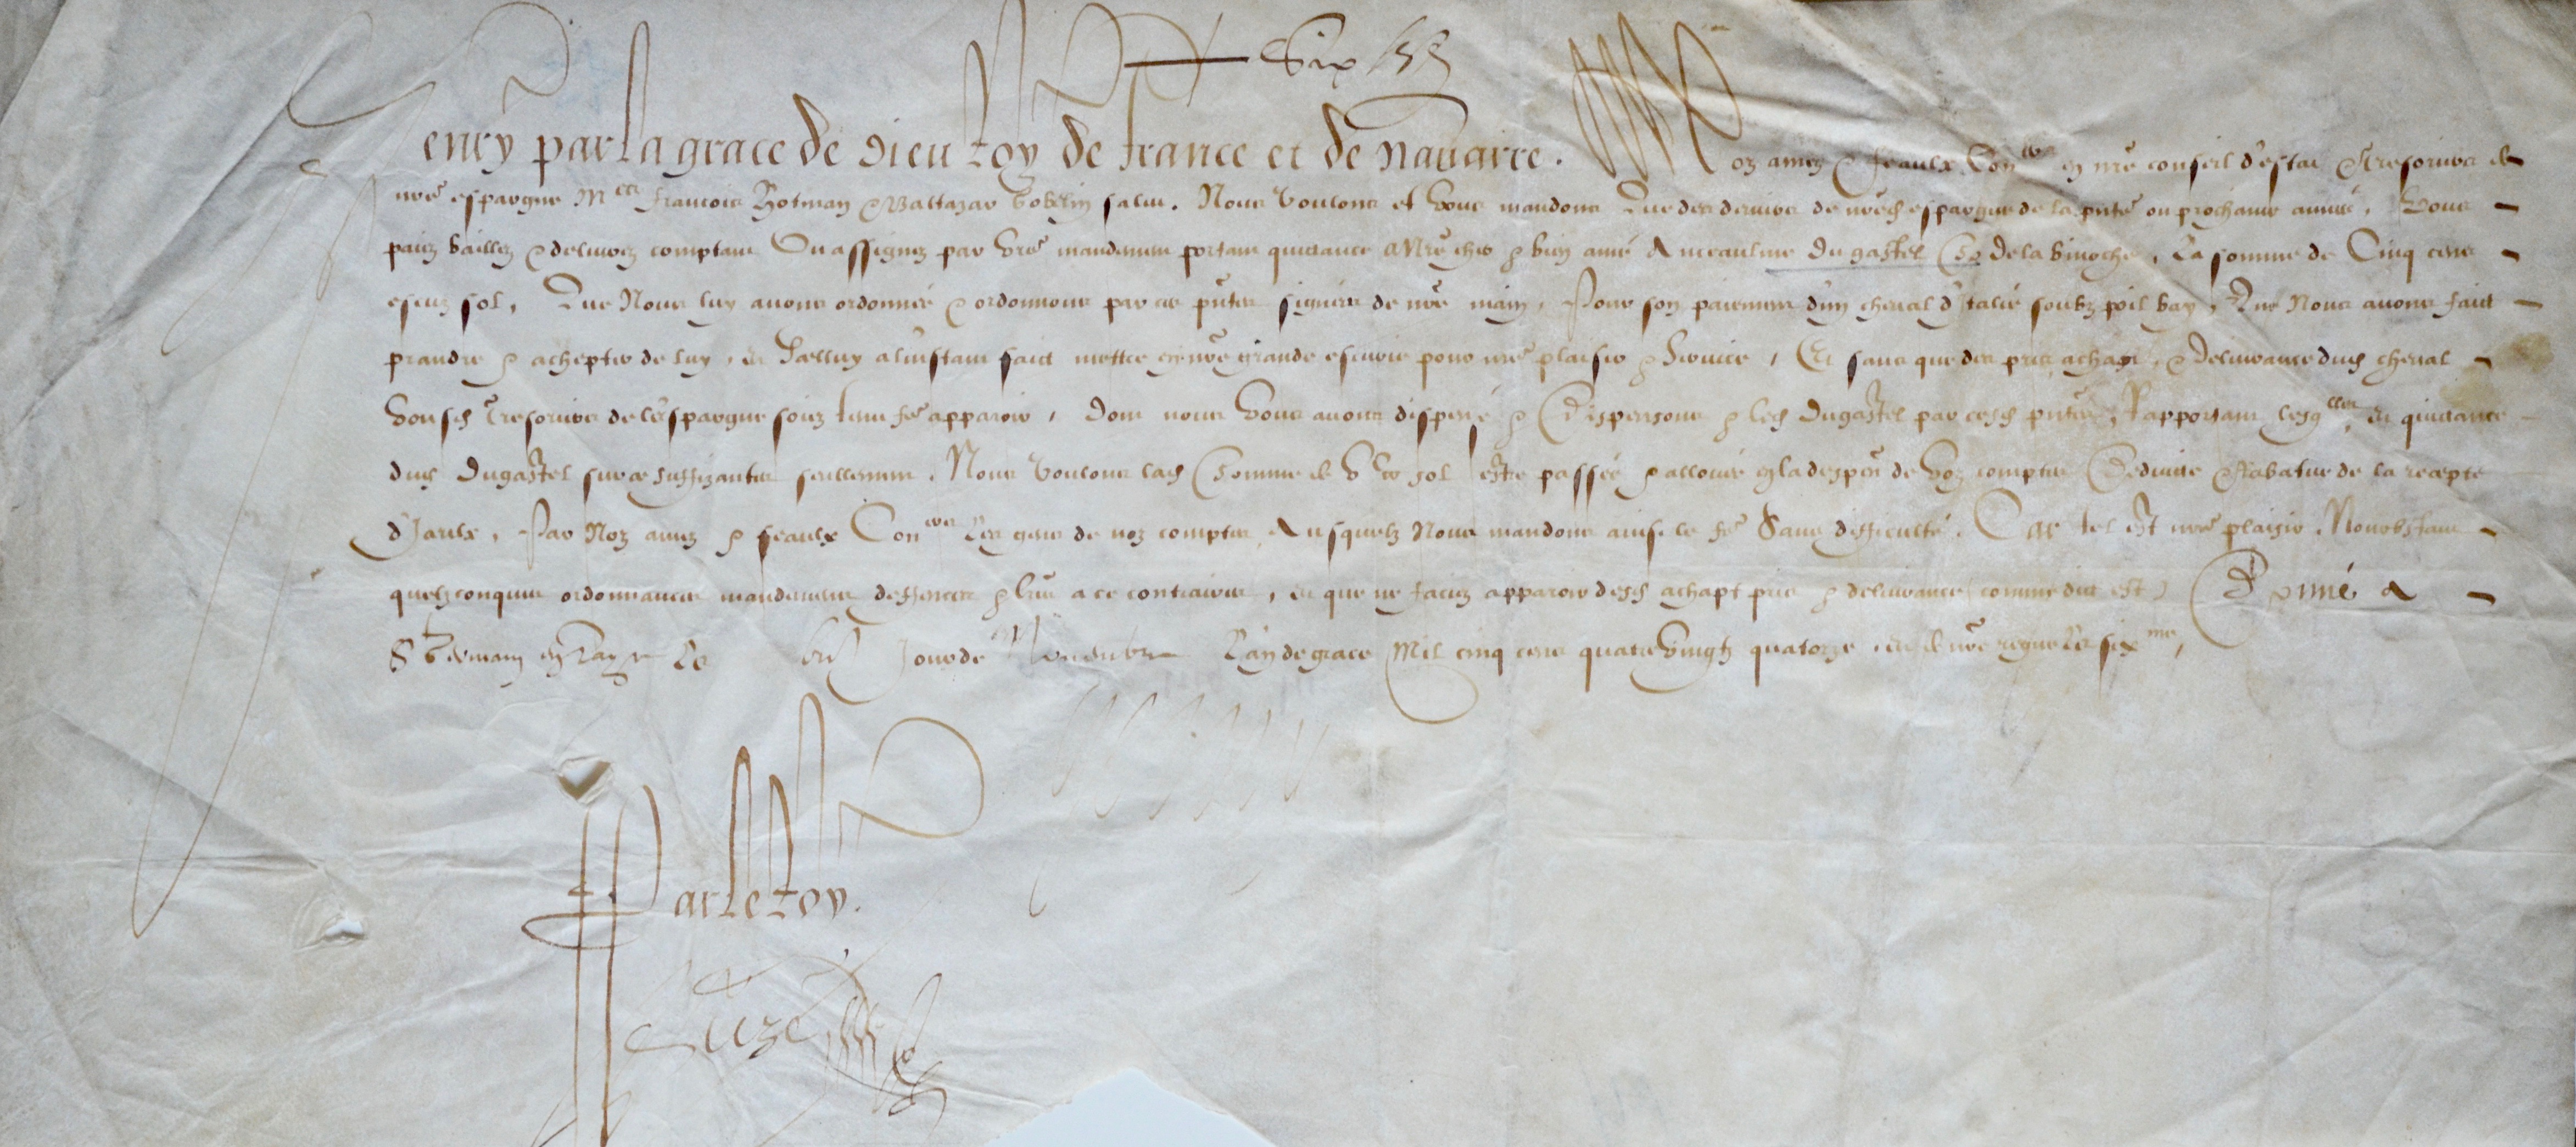 Six
Henry par la grace de Dieu Roy de france et de Navarre. A Noz amez & feaulx Con^ers en nre conseil d'estat & Tresoriers de
nre espargne M^es francois Hotman & Baltazar Gobelin salut. Nous voulons et vous mandons Que des deniers de nred espargne de la pnte ou prochaine année, vous
paiez baillez & delivrez comptant Ou assignez par vres mandemens portans quictance A Nre cher & bien amé Anceaulme du gastel Sr de la binoche, La somme de Cinq cens
escuz sol, Que Nous luy avons ordonnée & ordonnons par ces pntes signées de nre main, Pour son paiement d'un cheval d'Italie soubz poil bay, Que Nous avons faict
prandre & achepter de luy, et Icelluy a l'instant faict mettre en nre grande escuirie pour nre plaisir & service, Et sans que des pris, achapt, & delivrance dud cheval
vousd Tresoriers de l'espargne soiez tenu fe apparoir, dont nous vous avons dispensé & Dispensons & led Dugastel par cesd pntes, Rapportant lesq^lles, et quictance
dud Dugastel sur ce suffizante seullement, Nous voulons lad Somme de V^c sol estre passée & allouée en la despen de voz comptes Deduitte & Rabatue de la recepte
d'Iceulx, Par Noz amez & feaulx Con^ers Les gens de noz comptes, Ausquelz Nous mandons ainsi le fe Sans difficulté, Car tel est nre plaisir, Nonobstant
quelzconques ordonnances mandemens deffences & lres a ce contraires, et que ne faciez apparoir desd achapt pris & delivrance (comme dict est) Donné A
S^t Germain en Laye Le jour de Novembre L'an de grace Mil cinq cens quatre vingtz quatorze, et de nre regne Le six^me,
Henry
Par le Roy.
Ruzé